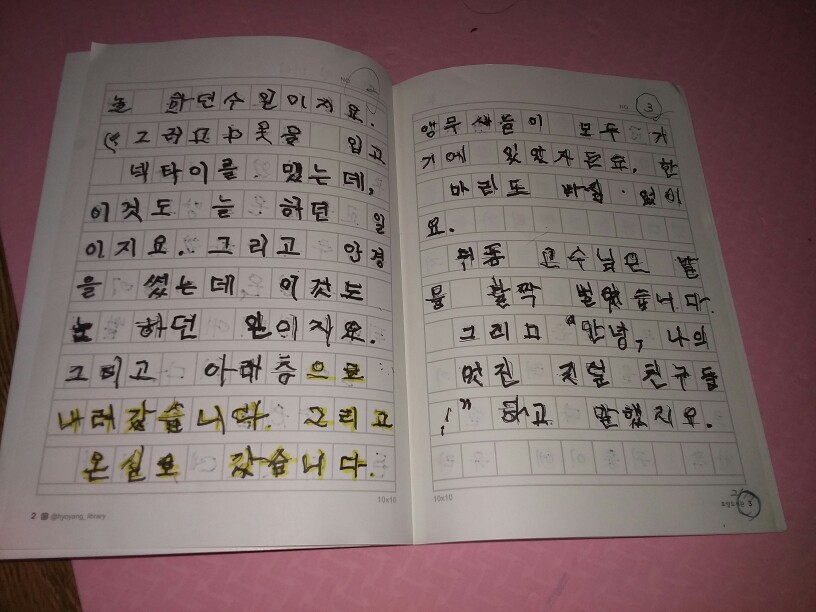 늘 하던 수 일이지요.
그리고 옷을 입고
넥타이를 맸는데,
이것도 늘 하던 일
이지요. 그리고 안경
을 썼는데, 이것도
늘 하던 일이지요.
그리고 아래층으로
내려갔습니다. 그리고
온실로 갔습니다.
10x10
2 @hyoyang_library
3
앵무새들이 모두 거
기에 있었자든요, 한
마리도 빠짐없이
요.
뒤퐁 교수님은 팔
을 활짝 벌렸습니다.
그리고 "안녕, 나의
멋진 깃털 친구들
!" 하고 말했지요.
10x10
3